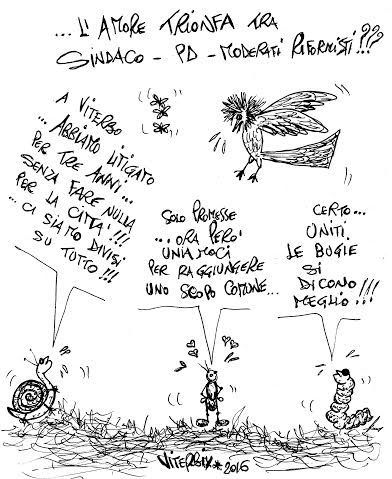 ...L'AMORE TRIONFA TRA
SINDACO - PD - MODERATI RIFORMISTI!!?
A VITERBO
...ABBIAMO LITIGATO
PER TRE ANNI...
SENZA FARE NULLA
PER LA CITTA'!!!
...CI SIAMO DIVISI
SU TUTTO!!!
SOLO PROMESSE
...ORA PERO'
UNIAMOCI
PER RAGGIUNGERE
UNO SCOPO COMUNE...
CERTO...
UNITI
LE BUGIE
SI
DICONO
MEGLIO!!!
VITERBIX*2016